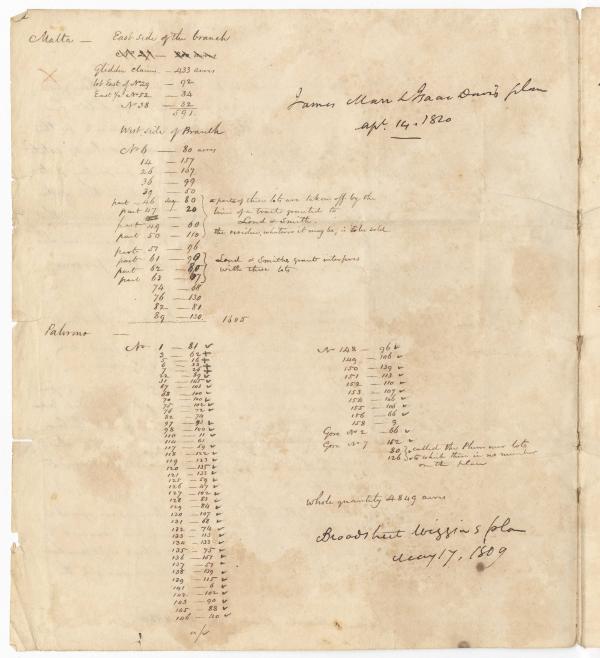 Malta — East side of the branch
Glidden claim — 433 acres
lot East of No 29 — 92
East ½ No 52 — 34
No 38 — 32
591
James Marr & Isaac Davis plan
apl. 14. 1820
West side of Branch
No 6 — 80 acres
14 — 157
26 — 167
36 — 99
39 — 50
part 46 — 80
part 47 — 20
part 49 — 60
part 50 — 110
parts of these lots are taken off by the
line of a tract granted to
Lond & Smith.
the residue, whatever it may be, is to be sold
part 57 — 96
part 61 — 90
part 62 — 80
part 63 — 67
Lond & Smiths grant interferes
with these lots
74 — 68
76 — 130
82 — 81
89 — 130
1605
Palermo —
No 1 — 81
3 — 62
5 — 16
22 — 89
31 — 105
67 — 101
68 — 100
74 — 100
75 — 102
76 — 72
82 — 74
97 — 91
98 — 100
110 — 11
114 — 61
117 — 59
118 — 122
119 — 123
120 — 135
121 — 133
125 — 59
126 — 47
127 — 102
128 — 83
129 — 84
130 — 107
131 — 68
132 — 74
133 — 113
134 — 133
135 — 75
136 — 151
137 — 57
138 — 139
139 — 115
141 — 6
142 — 102
143 — 90
145 — 88
146 — 120
No 148 — 96
149 — 106
150 — 139
151 — 113
152 — 110
153 — 107
154 — 106
155 — 106
156 — 66
158 — 3
Gore No 2 — 66
Gore No 7 — 152
80
126
called the Plummer lots
to which there is no number
on the plan
Whole quantity 4849 acres
Broadstreet Wiggins plan
May 17, 1809